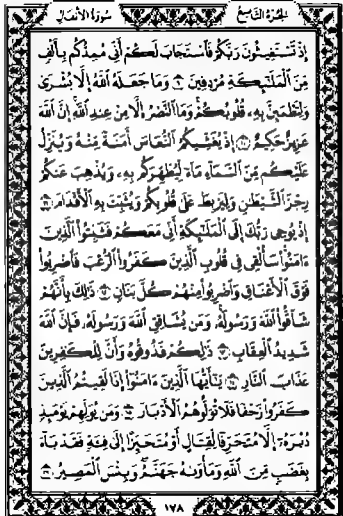 الجزء التاسع
سورة الأنفال
إِذْ تَسْتَغِيثُونَ رَبَّكُمْ فَٱسْتَجَابَ لَكُمْ أَنِّي مُمِدُّكُم بِأَلْفٍ
مِّنَ ٱلْمَلَٰٓئِكَةِ مُرْدِفِينَ ۝٩ وَمَا جَعَلَهُ ٱللَّهُ إِلَّا بُشْرَىٰ
وَلِتَطْمَئِنَّ بِهِۦ قُلُوبُكُمْ وَمَا ٱلنَّصْرُ إِلَّا مِنْ عِندِ ٱللَّهِ إِنَّ ٱللَّهَ
عَزِيزٌ حَكِيمٌ ۝١٠ إِذْ يُغَشِّيكُمُ ٱلنُّعَاسَ أَمَنَةً مِّنْهُ وَيُنَزِّلُ
عَلَيْكُم مِّنَ ٱلسَّمَآءِ مَآءً لِّيُطَهِّرَكُم بِهِۦ وَيُذْهِبَ عَنكُمْ
رِجْزَ ٱلشَّيْطَٰنِ وَلِيَرْبِطَ عَلَىٰ قُلُوبِكُمْ وَيُثَبِّتَ بِهِ ٱلْأَقْدَامَ ۝١١
إِذْ يُوحِي رَبُّكَ إِلَى ٱلْمَلَٰٓئِكَةِ أَنِّي مَعَكُمْ فَثَبِّتُوا۟ ٱلَّذِينَ
ءَامَنُوا۟ سَأُلْقِي فِي قُلُوبِ ٱلَّذِينَ كَفَرُوا۟ ٱلرُّعْبَ فَٱضْرِبُوا۟
فَوْقَ ٱلْأَعْنَاقِ وَٱضْرِبُوا۟ مِنْهُمْ كُلَّ بَنَانٍ ۝١٢ ذَٰلِكَ بِأَنَّهُمْ
شَآقُّوا۟ ٱللَّهَ وَرَسُولَهُۥ وَمَن يُشَاقِقِ ٱللَّهَ وَرَسُولَهُۥ فَإِنَّ ٱللَّهَ
شَدِيدُ ٱلْعِقَابِ ۝١٣ ذَٰلِكُمْ فَذُوقُوهُ وَأَنَّ لِلْكَٰفِرِينَ
عَذَابَ ٱلنَّارِ ۝١٤ يَٰٓأَيُّهَا ٱلَّذِينَ ءَامَنُوٓا۟ إِذَا لَقِيتُمُ ٱلَّذِينَ
كَفَرُوا۟ زَحْفًا فَلَا تُوَلُّوهُمُ ٱلْأَدْبَارَ ۝١٥ وَمَن يُوَلِّهِمْ يَوْمَئِذٍ
دُبُرَهُۥٓ إِلَّا مُتَحَرِّفًا لِّقِتَالٍ أَوْ مُتَحَيِّزًا إِلَىٰ فِئَةٍ فَقَدْ بَآءَ
بِغَضَبٍ مِّنَ ٱللَّهِ وَمَأْوَىٰهُ جَهَنَّمُ وَبِئْسَ ٱلْمَصِيرُ ۝١٦
١٧٨